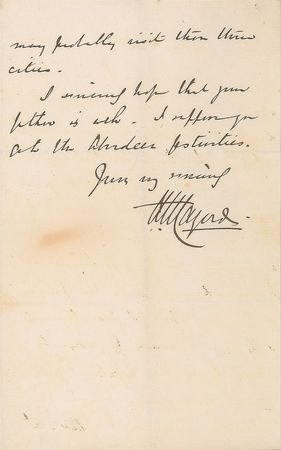 may probably visit them three
cities.
I sincerely hope that your
father is well. I suppose you
at the Aberdeen festivities.
Yours very sincerely